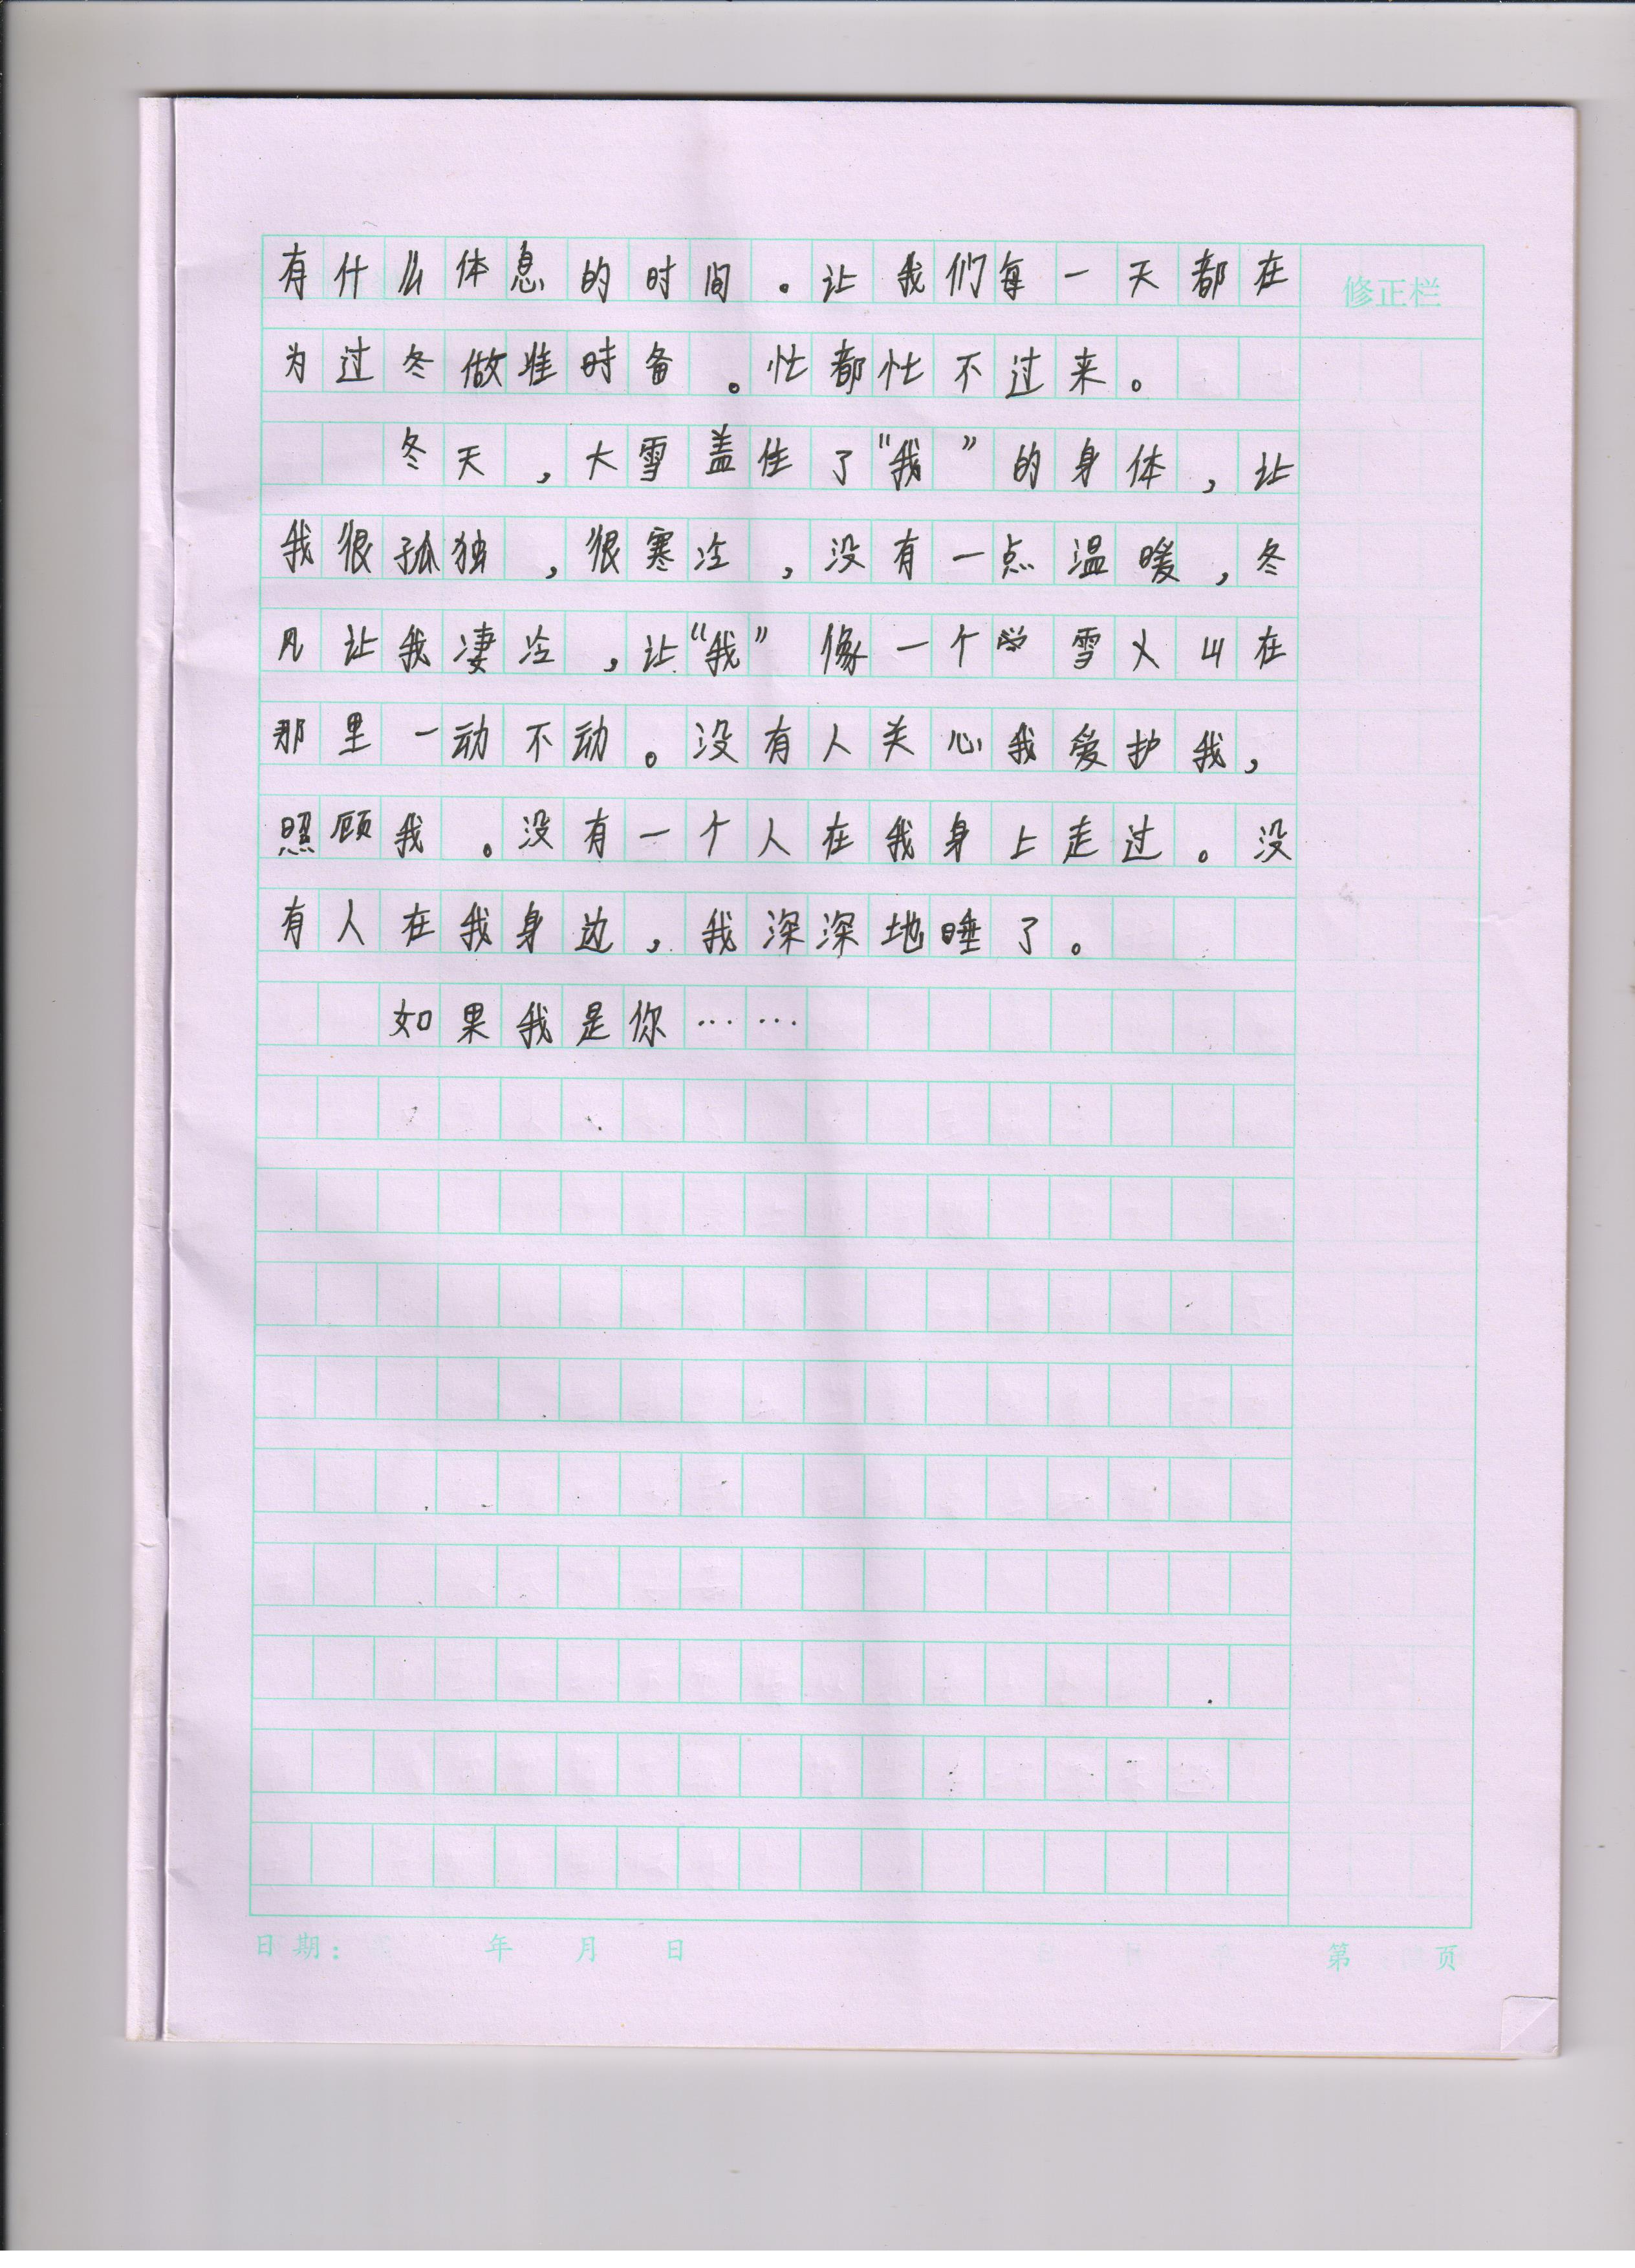 有什么体息的时间。让我们每一天都在
修正栏
为过冬做准时备。忙都忙不过来。
冬天，大雪盖住了“我”的身体，让
我很孤独，很寒冷，没有一点温暖，冬
风让我凄冷，让“我”像一个雪人叫在
那里一动不动。没有人关心我爱护我，
照顾我。没有一个人在我身上走过。没
有人在我身边，我深深地睡了。
如果我是你……
日期： 年 月 日 第 页